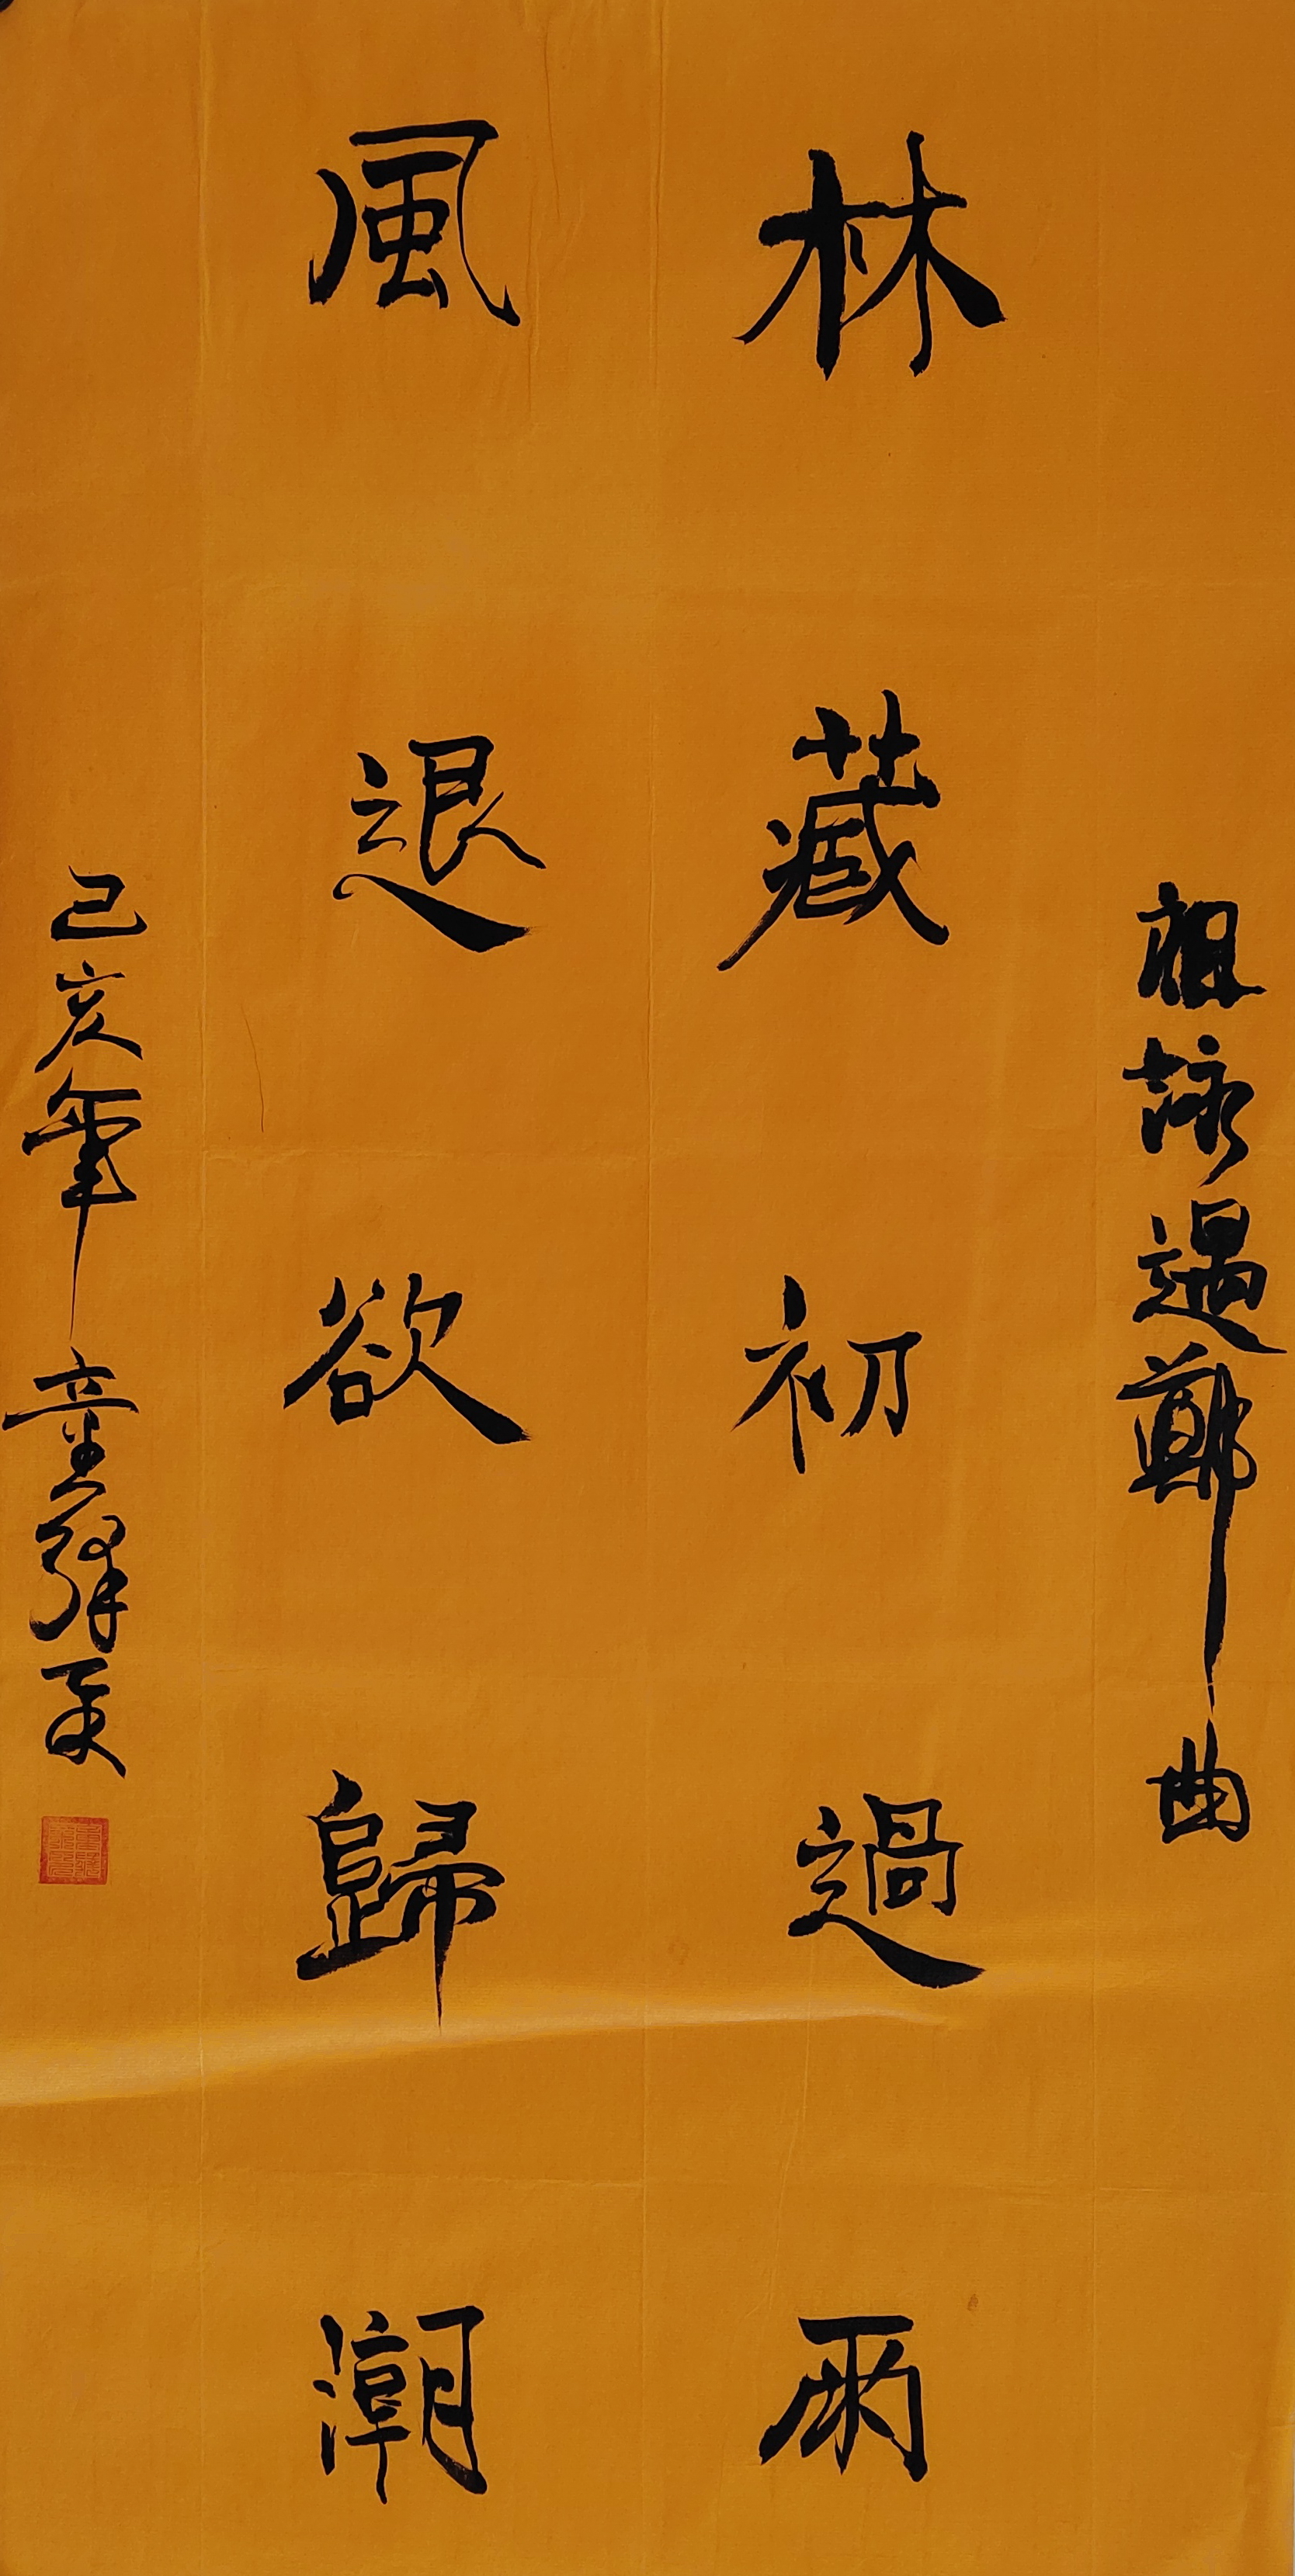 祖詠過鄭曲
林藏初過雨
風退欲歸潮
己亥年童祥